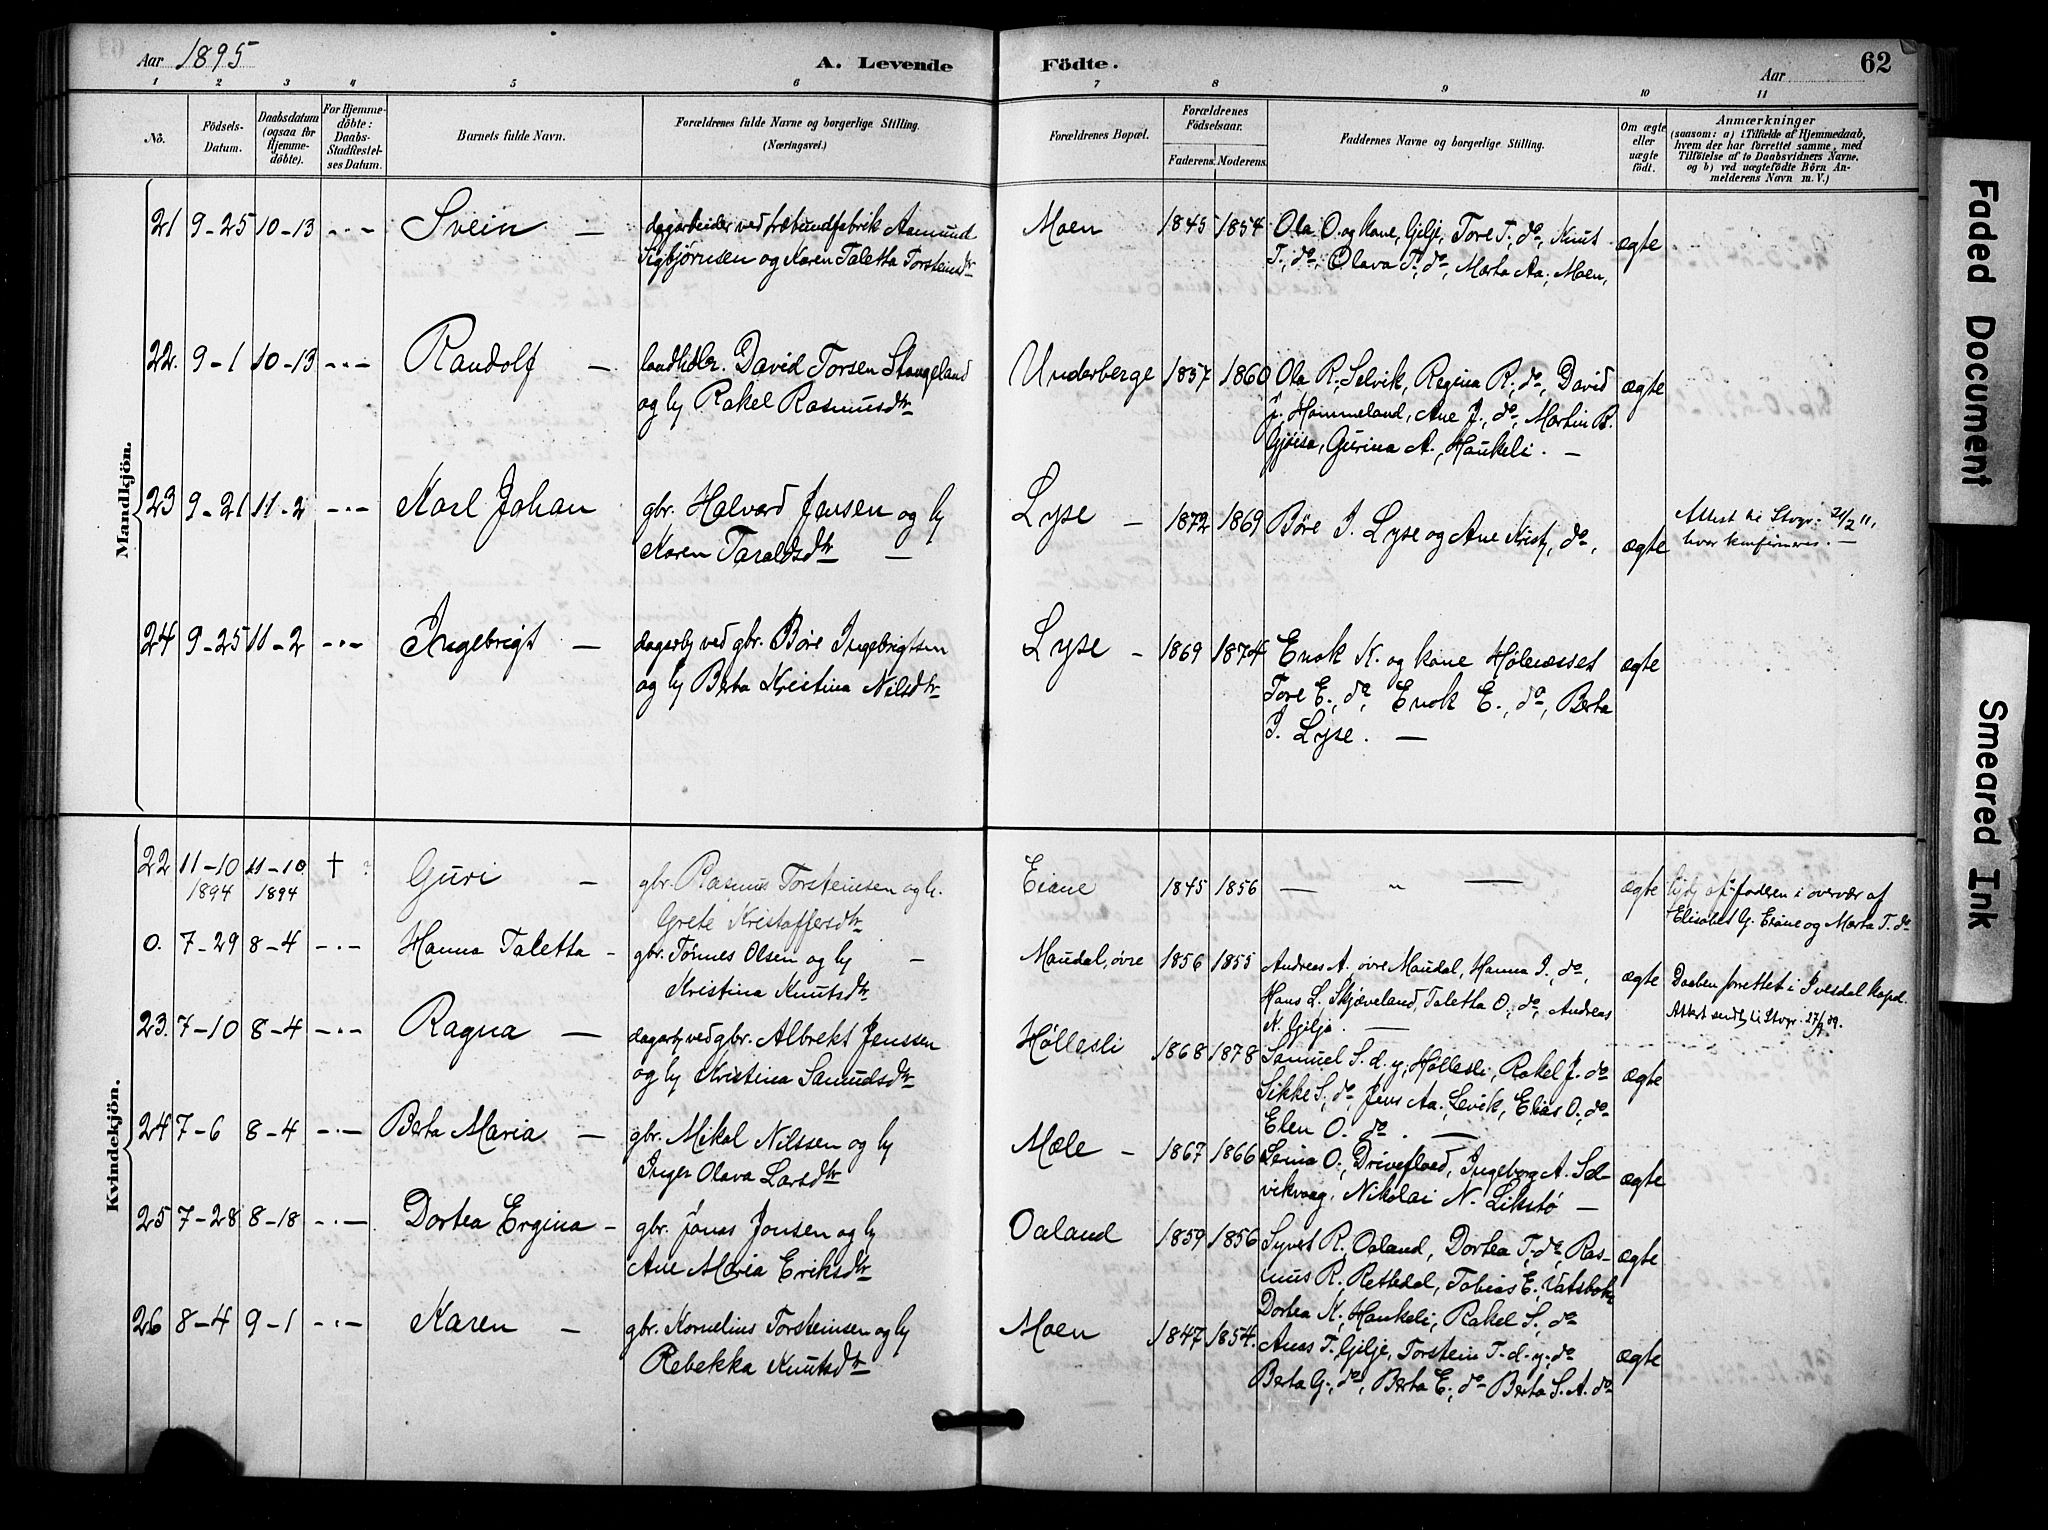 Aar 1895
A. Levende Födte.
Aar
62
1 2 3 4 5 6 7 8 9 10 11
No.
Födsels-Datum.
Daabsdatum (ogsaa for Hjemme-döbte).
For Hjemme-döbte: Daabs-Stadfæstel-ses Datum.
Barnets fulde Navn.
Forældrenes fulde Navne og borgerlige Stilling. (Næringsvei.)
Forældrenes Bopæl.
Forældrenes Födselsaar.
Faderens. Moderens.
Faddernes Navne og borgerlige Stilling.
Om ægte eller uægte födt.
Anmærkninger
(saasom: a) i Tilfælde af Hjemmedaab,
hvem der har forrettet samme, med
Tilföielse af to Daabsvidners Navne.
og b) ved uægtefödte Börn An-
melderens Navn m. V.)
Mandkjön.
21 9-25 10-13 -"- Svein — dagarbeider ved Aamund Moen 1845 1854 Ola O. og kone, Gilje, Tore T., do, Knut ægte
Sigbjørnsen og Karen Taletta Torsteinsdtr T., do, Olava T., do, Marta Aa., Moen,
22. 9-1 10-13 -"- Randolf — landhdlr. David Torsen Stangeland Underberge 1857 1860 Ola R. Selvik, Regina R., do, David ægte
og hu Rakel Rasmusdtr J. Hommeland, Ane J., do, Martin B.
Gjøise, Gurina A., Haukeli. —
23 9-21 11-2 -"- Karl Johan gbr. Halvard Jensen og hu Lyse — 1872 1869 Børe I. Lyse og Ane Krist., do, ægte Attest til Stvgr. 21/2 11,
Karen Taraldsdtr — hvor konfirmeres. —
24 9-25 11-2 -"- Ingebrigt — dagarb. ved gbr. Børe Ingebrigtsen Lyse — 1869 1874 Enok K. og kone Helmesset ægte
og hu Berta Kristina Nilsdtr Tore E., do, Enok E., do, Berta
I. Lyse. —
Kvindekjön.
22 11-10 11-10 † ? Guri — gbr. Rasmus Torsteinsen og h. Eiane 1845 1856 — " — ægte af faderen i overvær af
1894 1894 Grete Kristoffersdtr Elisabet G. Eiane og Marta T. do
0. 7-29 8-4 -"- Hanna Taletta - gbr. Tønnes Olsen og hu — Maudal, øvre 1856 1855 Andreas A. øvre Maudal, Hanna I., do, ægte Daaben forrettet i Ivesdal kapel.
Kristina Knutsdtr Hans L. Skjæveland, Taletta O., do, Andreas
N. Gilje. — Attest sendt til Stvgr.
23. 7-10 8-4 -"- Ragna — dagarb. ved gbr. Albrekt Jenssen Høllesli 1868 1878 Samuel S. d. y., Høllesli, Rakel J. do ægte
og hu Kristina Samuelsdtr Sikke S., do, Jens Aa., Levik, Elias O., do
Elen O. do. —
24 7-6 8-4 -"- Berta Maria — gbr. Mikal Nilssen og hu Mæle — 1867 1866 Lena O., Driveflaad, Ingeborg A. Sel- ægte
Inger Olava Larsdtr vikvaag, Nikolai N. Likstø —
25 7-28 8-18 -"- Dortea Ergina - gbr. Jonas Jonsen og hu Oaland 1859 1856 Syvert R., Oaland, Dortea T., do, Ras- ægte
Ane Maria Eriksdtr mus R., Rettedal, Tobias E., Vatsbakk
Dortea K., Haukeli, Rakel S., do
26 8-4 9-1 -"- Karen — gbr. Kornelius Torsteinsen og hu Moen 1847 1854. Anas T. Gilje, Torstein T. d. y., do ægte
Rebekka Knutsdtr Berta G., do, Berta E., do Berta S. A. do
Faded Document
Smeared Ink